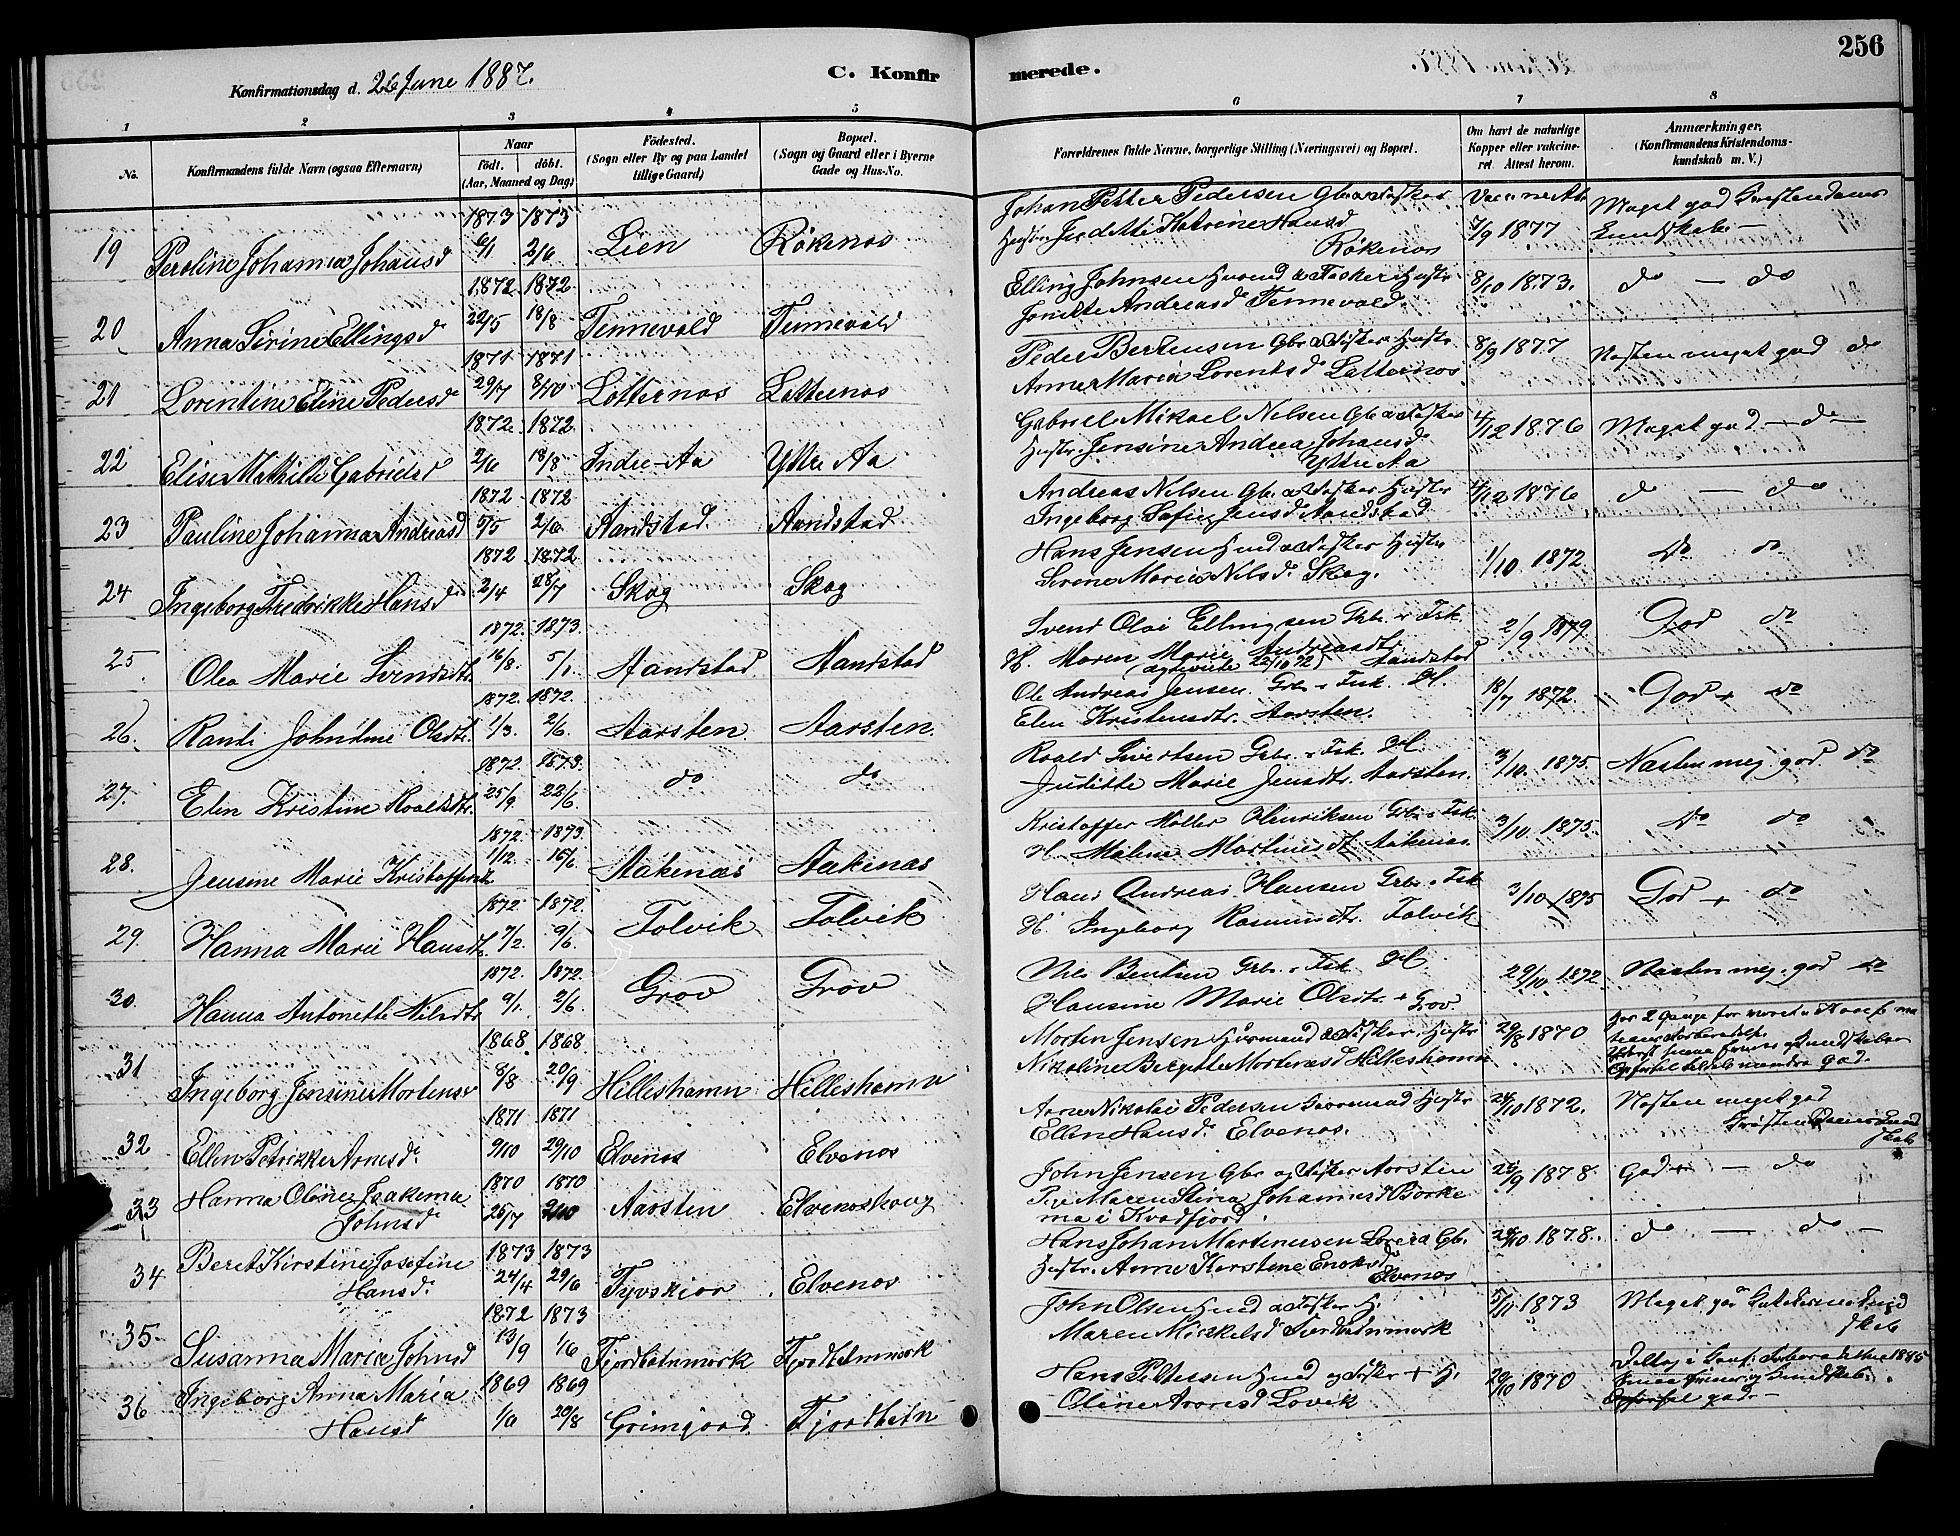 256
Konfirmationsdag d. 26 June 1887.
C. Konfirmerede.
1 2 3 4 5 6 7 8
No.
Konfirmandens fulde Navn (ogsaa Efternavn)
Naar
födt. döbt.
(Aar, Maaned og Dag)
Födested.
(Sogn eller By og paa Landet
tillige Gaard)
Bopæl.
(Sogn og Gaard eller i Byerne
Gade og Hus-No.
Forældrenes fulde Navne, borgerlige Stilling (Næringsvei) og Bopæl.
Om havt de naturlige
Kopper eller vakcine-
ret. Attest herom.
Anmærkninger.
(Konfirmandens Kristendoms-
kundskab m. V.)
19 Peroline Johanna Johansd 1873 6/1 1873 2/6 Lien Rökenes
Johan Petter Pedersen Gbr a Fisker
Hustru Katrine Hansd
Rökenes
7/9 1877
Meget god Kristendoms
Kundskab
20 Anna Sirine Ellingsd 1872 29/5 1872 18/8 Tennevold Tennevold
Elling Johnsen Husmd a Fisker Hustr
Andreasd Tennevold
8/10 1873. do — do
21 Lorentine Eline Pedersd 1871 29/7 1871 8/10 Lotternes Lotternes
Peder Berteusen Gbr a Fisker Hustr
Anne Maria Lorentsd Lotternes
8/9 1877 Næsten meget god do
22 Elise Mathilde Gabrielsd 1872 2/6 1872 18/8 Indre-Aa Yttre Aa
Gabriel Mikael Nilsen Gbr a Fisker
Hustr. Jensine Andrea Johansd
Yttre Aa
4/12 1876 Meget god — do —
23 Pauline Johanna Andreasd 1872 5/5 1872 2/6 Aandstad Aandstad
Andreas Nilsen Gbr a Fisker Hustr
Ingeborg Sofie Jensd Aandstad
4/12 1876 do — do
24 Ingeborg Fredrikke Hansd 1872 2/4 1872 28/7 Skog Skog
Hans Jensen Husmd a Fisker Hustr
Maria Nilsd. Skog.
1/10 1872 do do
25 Olea Marie Svendsdtr. 1872. 16/8. 1873. 5/1 Aandstad Aandstad
Svend Olai Ellingsen Gbr. + Fsk.
H. Maren Marie Andreasdtr.
Aandstad
2/9 1879 God do
26. Ranti Johntine Olsdtr. 1872. 1/3. 1872. 2/6. Aarsten. Aarsten.
Ole Andreas Jensen Gbr. + Fsk. H.
Elen Kristensdtr. Aarsten.
18/7 1872. God + do
27. Elen Kristine Roaldsdtr. 1872. 25/9. 1873. 22/6. do do
Roald Sivertsen Gbr. + Fsk. H.
Juditte Marie Jensdtr. Aarsten.
3/10. 1875. Næsten meg. god do
28. Jensine Marie Kristoffersdtr 1872. 1/12. 1873. 15/6. Aakenæs Aakenæs
Kristoffer Möller Henriksen Gbr. + Fsk.
H. Malene Martinesdtr. Aakenæs
3/10. 1875. do do
29. Hanna Marie Hansdtr. 1872. 7/2. 1872. 9/6. Tolvik Tolvik
Hans Andreas Hansen Gbr. + Fsk
H. Ingeborg Rasmusdtr. Tolvik
3/10 1875 God + do
30. Hanna Antonette Nilsdtr. 1872. 9/1. 1872. 2/6. Grov Grov
Nils Bentsen Gbr. + Fsk. H.
Hansine Marie Olsdtr. + Grov
29/10. 1872. Næsten meg. god do
31 Ingeborg Jensine Mortensd 1868. 8/8 1868. 20/9 Hilleshamn Hilleshamn
Morten Jensen Husmand a Fisker. Hustr
Nikoline Bergitte Mortensd Hilleshamn
29/8 1870
Har 2 Gange för været
Opförsel god.
32 Ellen Petrikke Arnesd. 1871 9/10 1871 29/10 Elvenes Elvenes
Arne Nikolai Pedersen Husmand Hustr
Ellen Hansd. Elvenes.
24/10 1872.
Næsten meget god
Kristendoms Kund
skab
33 Hanna Oline Joakema
Johnsd 1870 25/7 1870 Aarsten Elvenesskog
John Jensen Gbr og Fisker Aarsten
Pige Maren Stina Johannesd
i Kvedfjord.
20/9 1878. God + — do
34 Beret Kirstine Josefine
Hansd. 1873 24/4 1873 29/6 Tyvskjær Elvenes
Hans Johan Martinussen Gb.
Hustr. Anne Kerstine Enoksd
Elvenes
29/10 1878. do — do —
35. Susanna Maria Johnsd 1872 13/9 1873 1/6 Fjordbotnmark Fjordbotnmark
John Olsen Husmd a Fisker H.
Maren Mikkelsd Fjordbotnmark
5/11 1873
Meget god Kund
skab
36 Ingeborg Anna Maria
Hansd 1869 1869 20/8 Grimjord Fjordbotn
Hans Pettersen Husmd og Fisker + H.
Oline Arontsd Lövik
29/10 1870
Deltog i Konf. 1885
Kundskab.
Opförsel god —